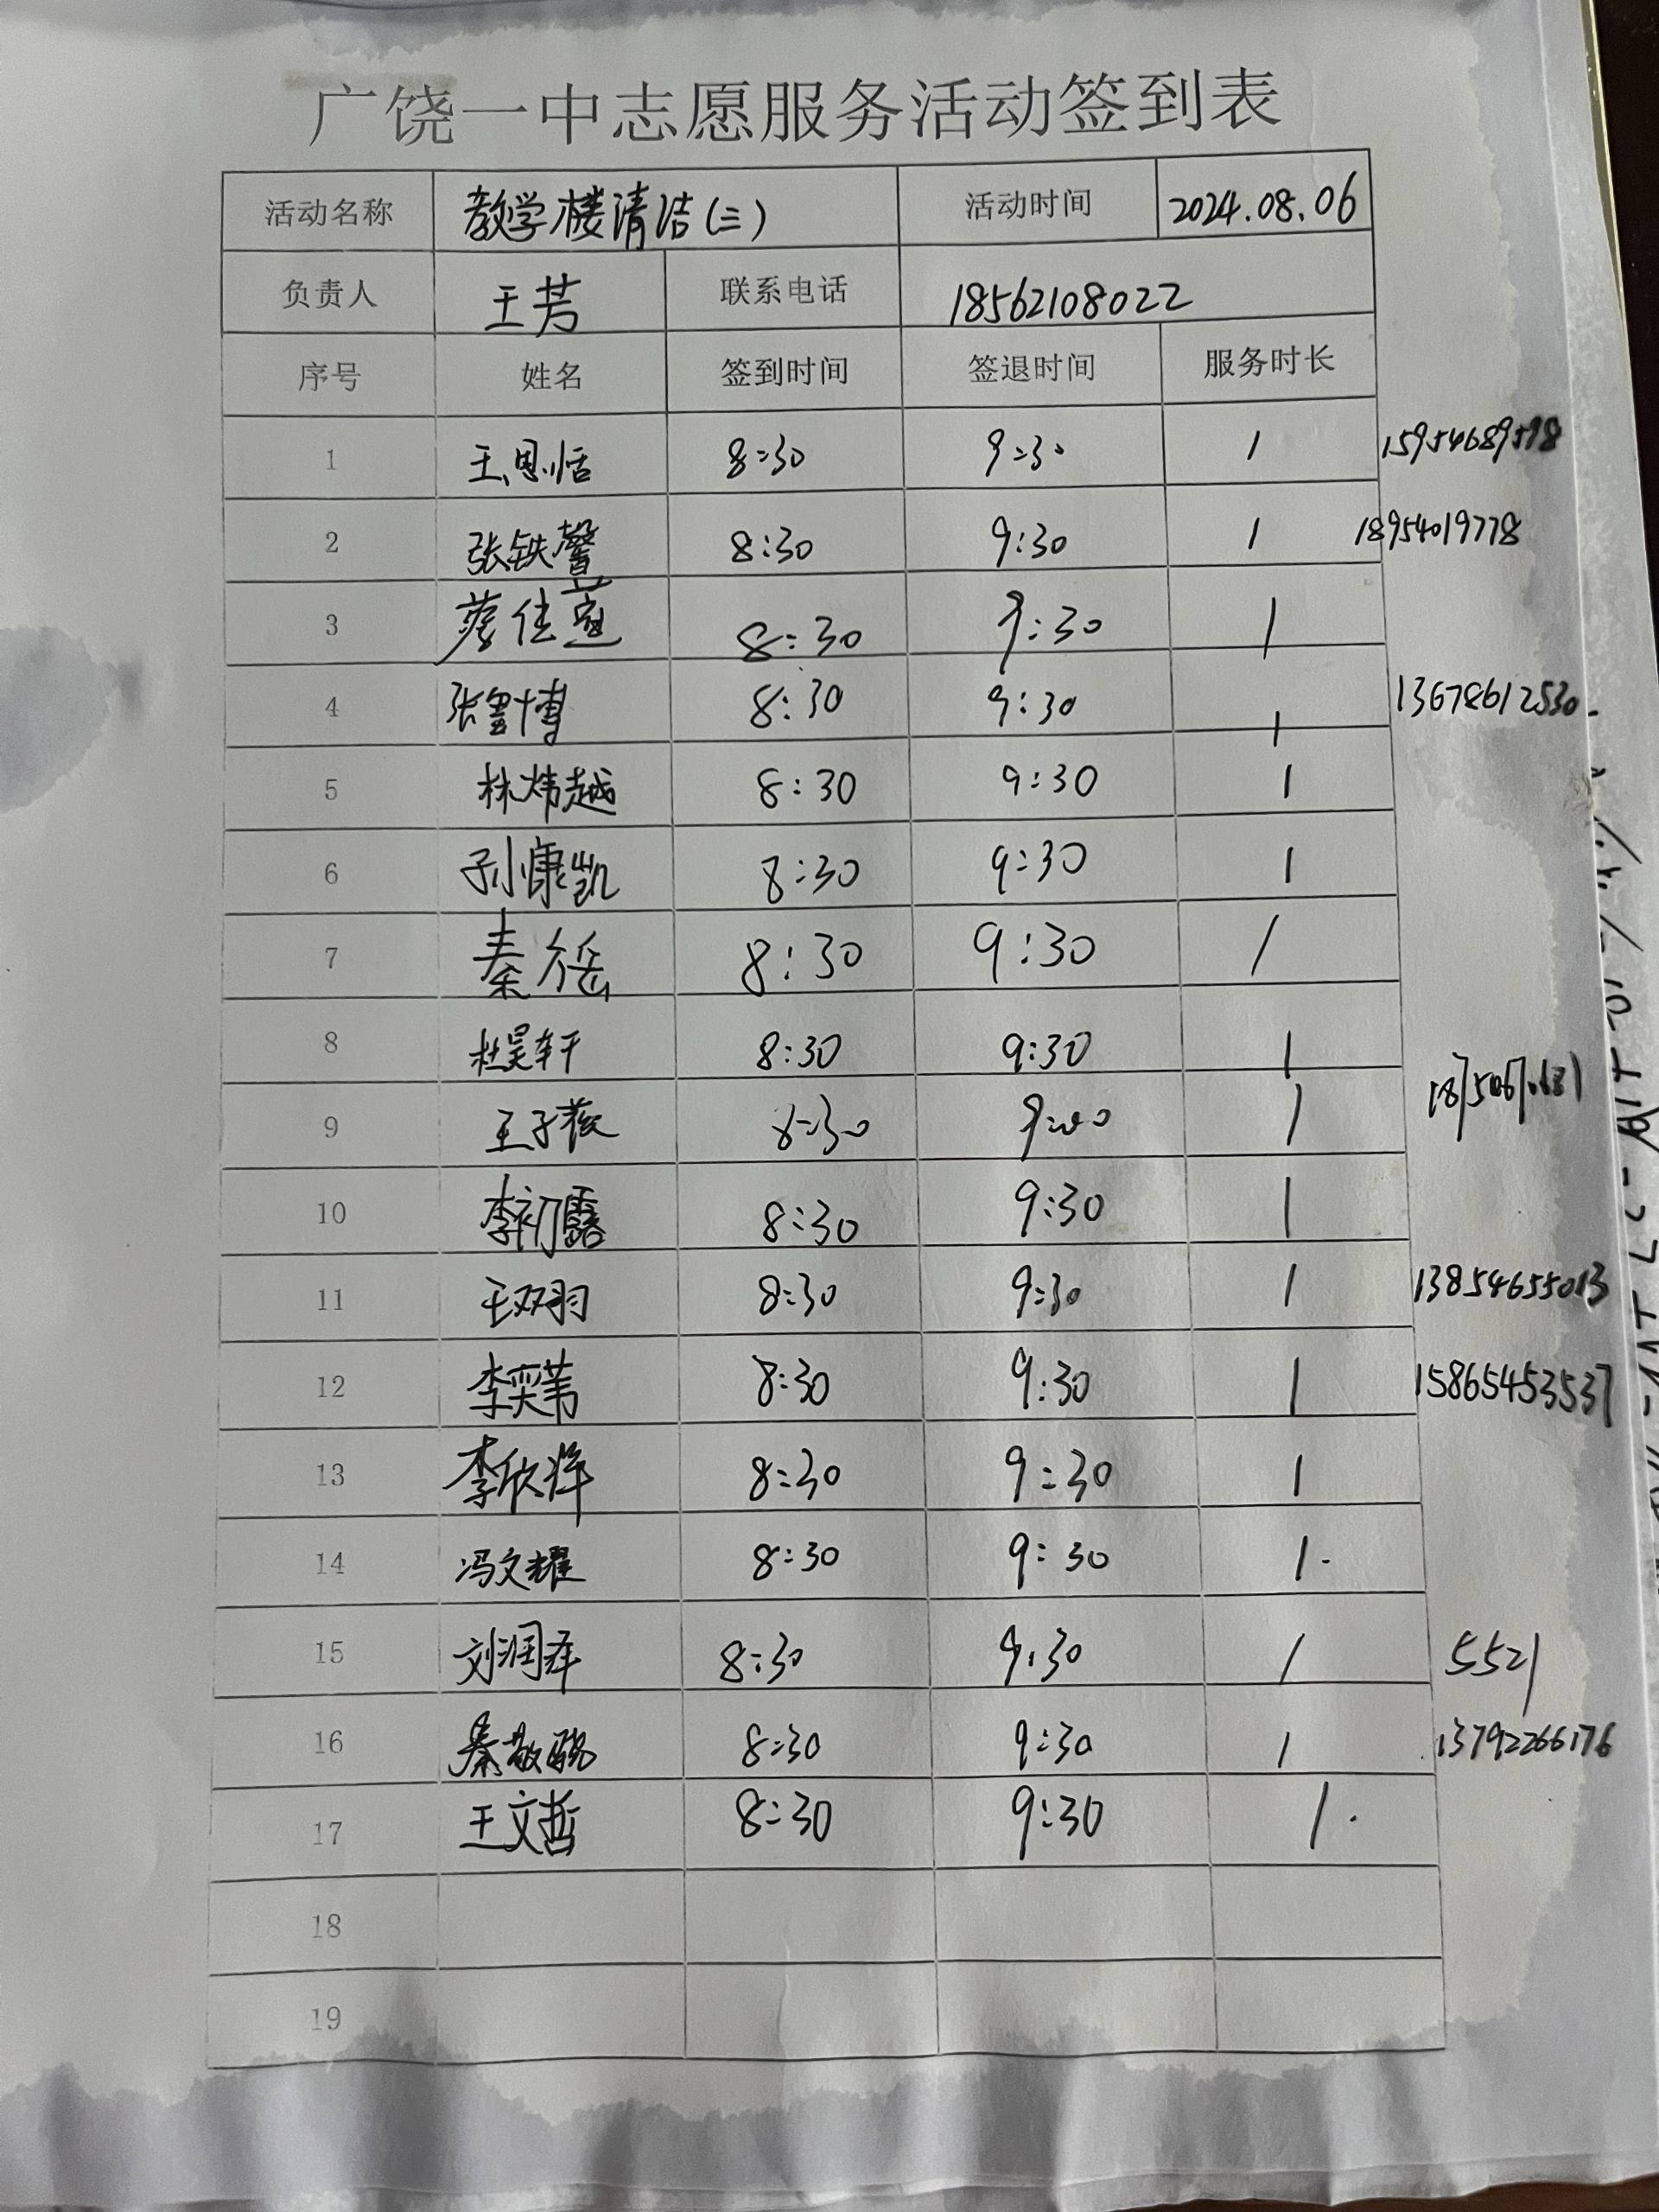 广饶一中志愿服务活动签到表
活动名称 教学楼清洁(三) 活动时间 2024.08.06
负责人 王芳 联系电话 18562108022
序号 姓名 签到时间 签退时间 服务时长
1 王思恬 8:30 9:30 1
2 张铁馨 8:30 9:30 1 18954019778
3 8:30 9:30 1
4 8:30 9:30 1 13678612530
5 林炜越 8:30 9:30 1
6 孙慷凯 8:30 9:30 1
7 秦 8:30 9:30 1
8 杜昊轩 8:30 9:30 1
9 王子薇 8:30 1
10 李初露 8:30 9:30 1
11 王双羽 8:30 9:30 1 13854655013
12 李奕苇 8:30 9:30 1 15865453537
13 李欣洋 8:30 9:30 1
14 冯文耀 8:30 9:30 1.
15 刘润泽 8:30 9:30 1 5521
16 秦敬骁 8:30 9:30 1 13792266176
17 王文哲 8:30 9:30 1.
18
19